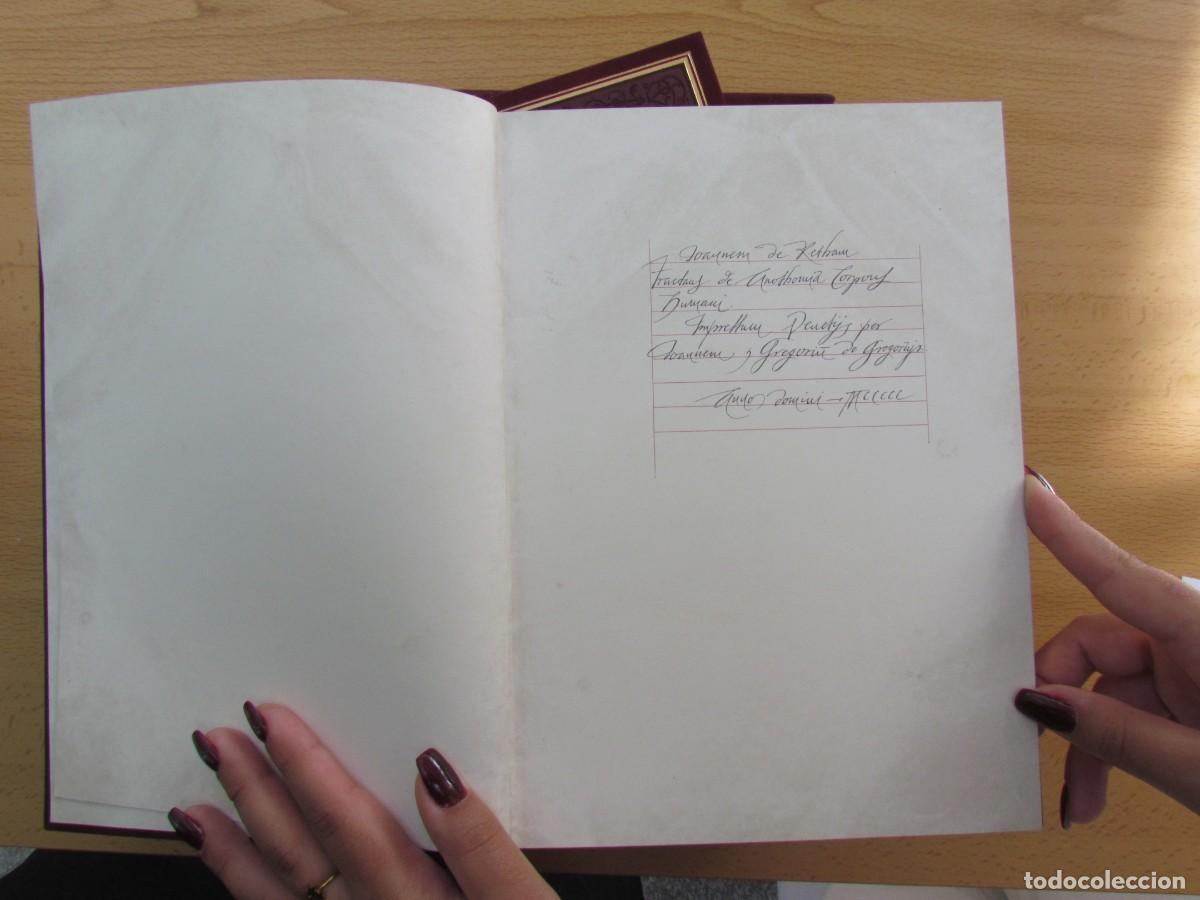 Ioannem de Ketham
Tractatus de Anothomia Corporis
Humani
Impressum Venetijs per
Ioannem y Gregoriū de Gregorijs
Anno Domini – MCCCCC
todocoleccion